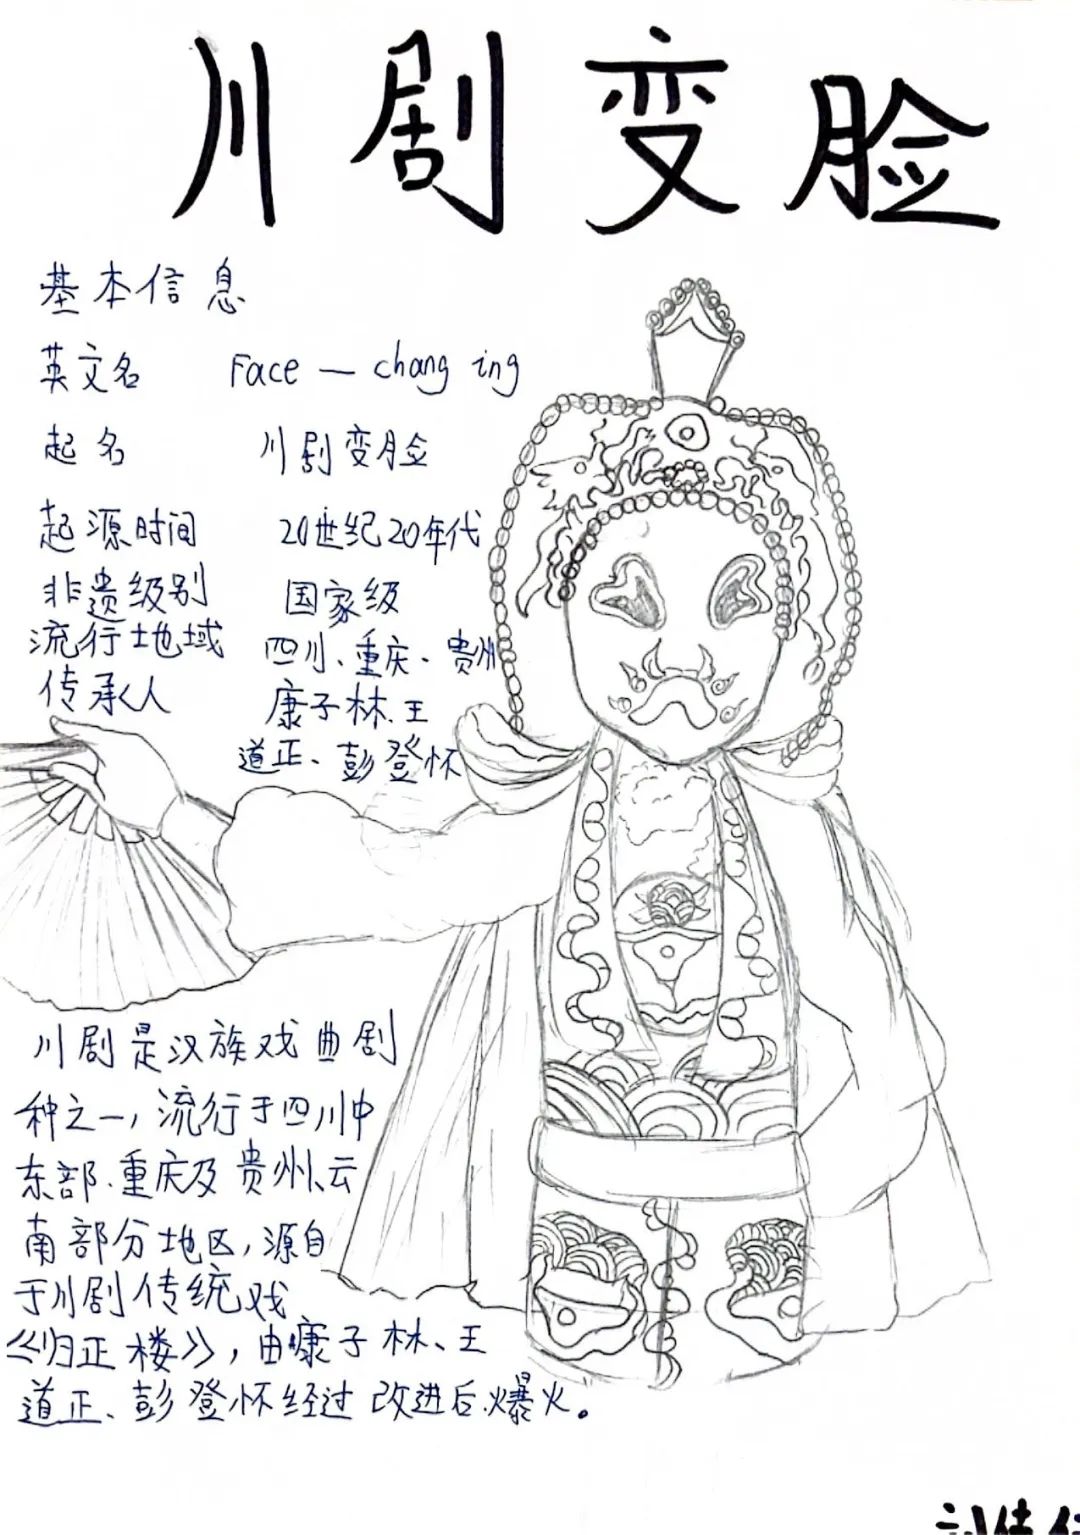 川剧变脸
基本信息
英文名 Face — changing
起名 川剧变脸
起源时间 20世纪20年代
非遗级别 国家级
流行地域 四川、重庆、贵州
传承人 康子林、王
道正、彭登怀
川剧是汉族戏曲剧
种之一，流行于四川中
东部、重庆及贵州、云
南部分地区，源自
于川剧传统戏
《归正楼》，由康子林、王
道正、彭登怀经过改进后爆火。